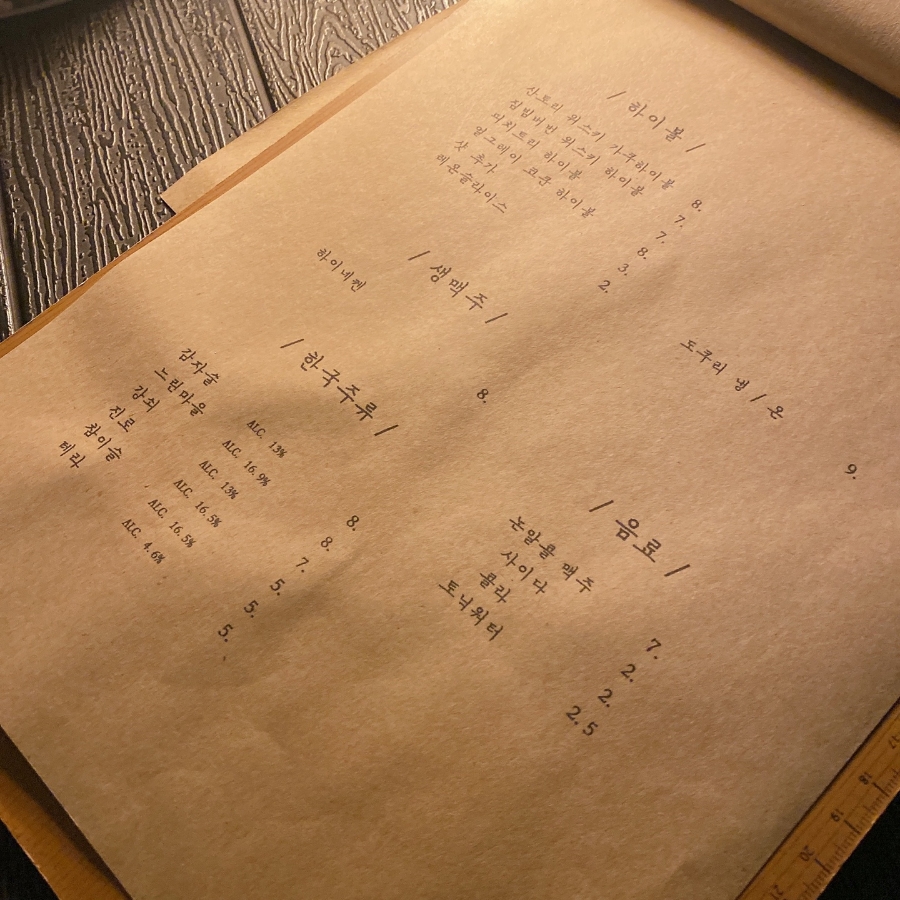 / 하이볼 /
산토리 위스키 가쿠하이볼 8.
짐빔버번 위스키 하이볼 7.
피치트리 하이볼 7.
얼그레이 코쿤 하이볼 8.
샷 추가 3.
레몬슬라이스 2.
/ 생맥주 /
하이네켄 8.
/ 한국주류 /
감자술 ALC. 13% 8.
느린마을 ALC. 16.9% 8.
강쇠 ALC. 13% 7.
진로 ALC. 16.5% 5.
참이슬 ALC. 16.5% 5.
테라 ALC. 4.6% 5.
도쿠리 냉 / 온 9.
/ 음료 /
논알콜 맥주 7.
사이다 2.
콜라 2.
토닉워터 2.5
17
18
19
20
21